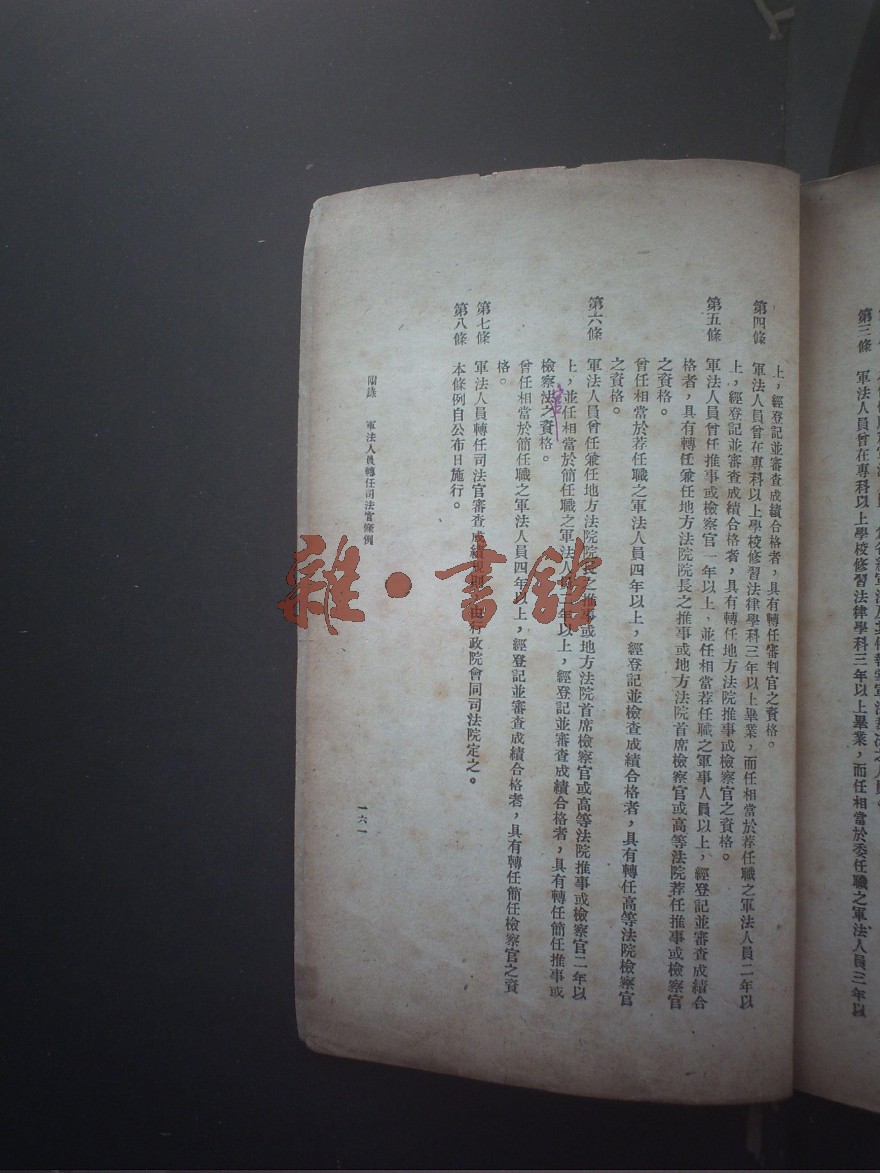 第三條　軍法人員曾在專科以上學校修習法律學科三年以上畢業，而任相當於委任職之軍法人員三年以
上，經登記並審查成績合格者，具有轉任審判官之資格。
第四條　軍法人員曾在專科以上學校修習法律學科三年以上畢業，而任相當於荐任職之軍法人員二年以
上，經登記並審查成績合格者，具有轉任地方法院推事或檢察官之資格。
第五條　軍法人員曾任推事或檢察官一年以上，並任相當荐任職之軍事人員以上，經登記並審查成績合
格者，具有轉任兼任地方法院院長之推事或地方法院首席檢察官或高等法院荐任推事或檢察官
之資格。
曾任相當於荐任職之軍法人員四年以上，經登記並檢查成績合格者，具有轉任高等法院檢察官
之資格。
第六條　軍法人員曾任兼任地方法院院長之推事或地方法院首席檢察官或高等法院推事或檢察官二年以
上，並任相當於簡任職之軍法人員二年以上，經登記並審查成績合格者，具有轉任簡任推事或
檢察法之資格。
曾任相當於簡任職之軍法人員四年以上，經登記並審查成績合格者，具有轉任簡任檢察官之資
格。
第七條　軍法人員轉任司法官審查成績規則，由行政院會同司法院定之。
第八條　本條例自公布日施行。
附錄　軍法人員轉任司法官條例
一六一
雜·書館